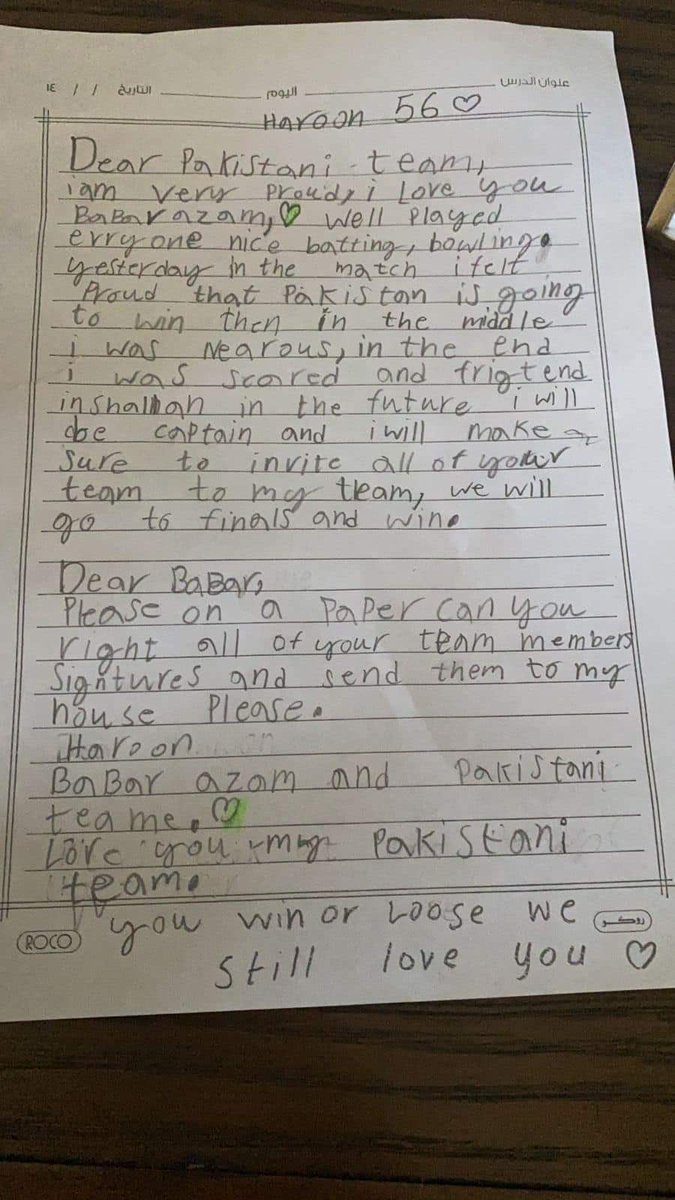 عنوان الدرس اليوم التاريخ / / ١٤
Haroon 56♡
Dear Pakistani team,
iam very proud, i love you
BaBar azam,♡ well played
erryone nice batting, bowling.
yesterday in the match i felt
Proud that Pakistan is going
to win then in the middle
i was nearous, in the end
i was scared and frigtend
inshallhah in the future i will
be captain and i will make
sure to invite all of your
team to my team, we will
go to finals and win.
Dear BaBar,
Please on a paper can you
right all of your team members
Signtures and send them to my
house Please.
Haroon
BaBar azam and Pakistani
teame.♡
Love you my Pakistani
team.
you win or Loose we
still love you ♡
ROCO روكو